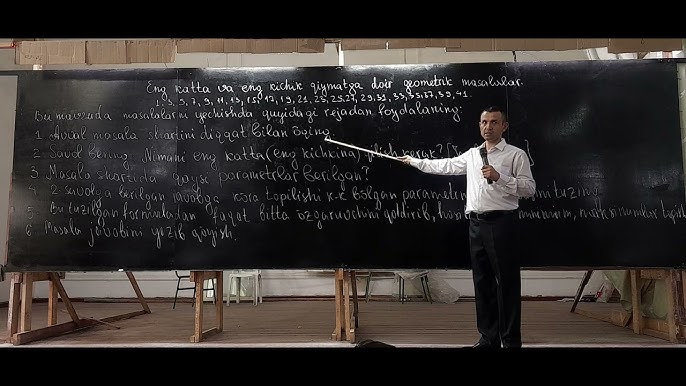 Eng katta va eng kichik qiymatga doir geometrik masalalar.
1, 3, 5, 7, 9, 11, 13, 15, 17, 19, 21, 23, 25, 27, 29, 31, 33, 35, 37, 39, 41.
Bu mavzuda masalalarni yechishda quyidagi rejadan foydalaning:
1. Avval masala shartini diqqat bilan o'qing
2. Savol bering. Nimani eng katta (eng kichkina) qilish kerak?
3. Masala shartida qaysi parametrlar berilgan?
4. 2 savolga berilgan javobga ko'ra topilishi k-k bo'lgan tuzing
5. Bu tuzilgan formuladan faqat bitta o'zgaruvchini qoldirib,
6. Masala javobini yozib qo'yish.